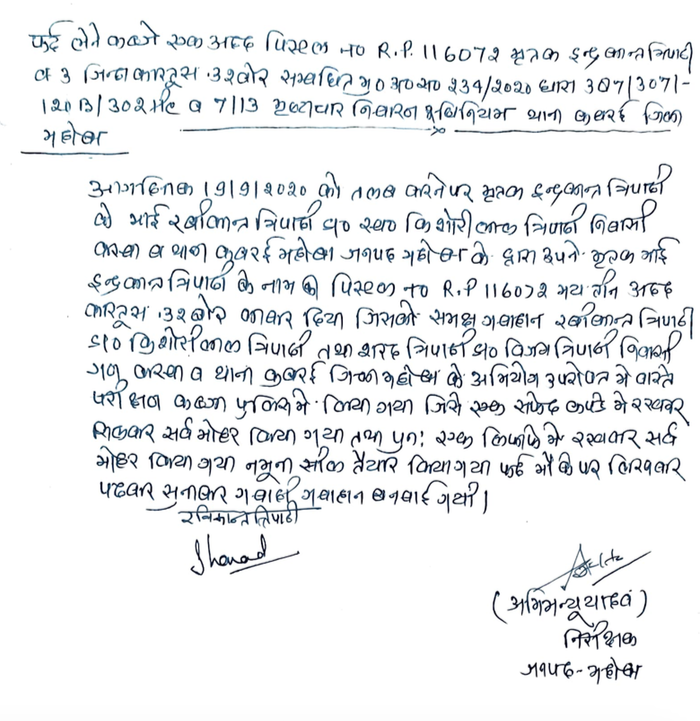 फर्द लेने कब्जे एक अदद पिस्टल no R.P. 116072 मृतक इन्द्रकान्त त्रिपाठी
व 3 जिन्दा कारतूस .32 बोर सम्बंधित मु0अ0स0 234/2020 धारा 387/307/-
120B/302 भा0द0वि0 व 7/13 भ्रष्टाचार निवारण अधिनियम थाना कबरई जिला
महोबा
आज दिनांक 19/9/2020 को तलब करने पर मृतक इन्द्रकान्त त्रिपाठी
के भाई रवीकान्त त्रिपाठी s/o स्व0 किशोरीलाल त्रिपाठी निवासी
कस्बा व थाना कबरई महोबा जनपद महोबा के द्वारा अपने मृतक भाई
इन्द्रकान्त त्रिपाठी के नाम की पिस्टल no R.P 116072 मय तीन अदद
कारतूस .32 बोर लाकर दिया जिसको समक्ष गवाहान रवीकान्त त्रिपाठी
s/o किशोरीलाल त्रिपाठी तथा शरद त्रिपाठी s/o विजय त्रिपाठी निवासी
गण कस्बा व थाना कबरई जिला महोबा के अभियोग उपरोक्त मे वास्ते
परीक्षण कब्जा पुलिस मे लिया गया जिसे एक सफेद कपडे मे रखकर
सिलकर सर्व मोहर किया गया तथा पुन: एक लिफाफे मे रखकर सर्व
मोहर किया गया नमूना सील तैयार किया गया फर्द मौके पर लिखकर
पढकर सुनाकर गवाही गवाहान बनवाई गयी।
रविकान्त त्रिपाठी
Sharad
(अभिमन्यू यादव)
निरीक्षक
जनपद - महोबा